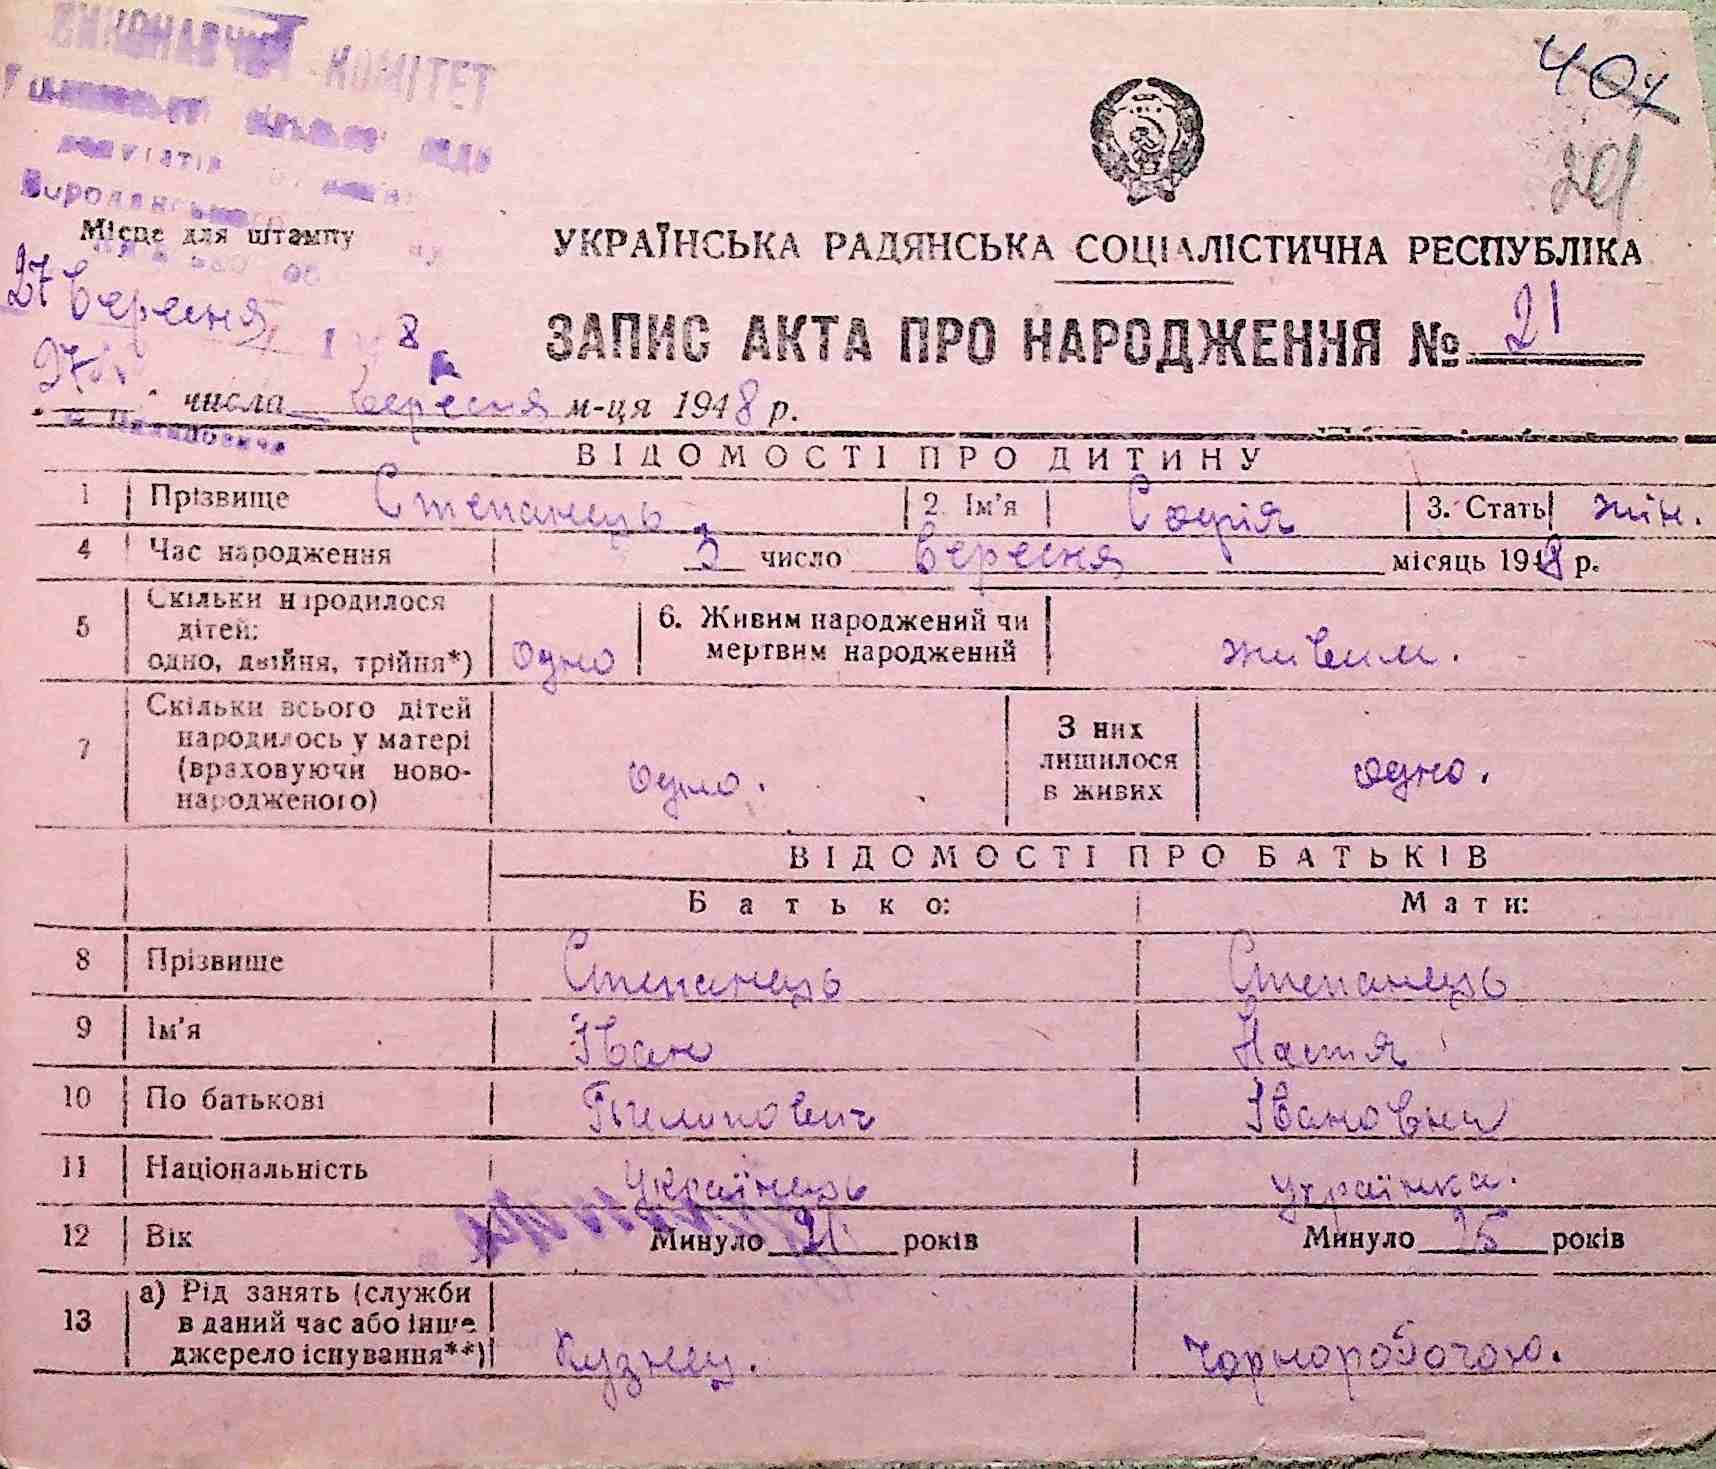 ВИКОНАВЧИЙ КОМІТЕТ
депутатів
Бородянського
Місце для штампу
27 вересня 1 8
407
УКРАЇНСЬКА РАДЯНСЬКА СОЦІАЛІСТИЧНА РЕСПУБЛІКА
ЗАПИС АКТА ПРО НАРОДЖЕННЯ № 21
27 числа вересня м-ця 1948 р.
ВІДОМОСТІ ПРО ДИТИНУ
1 Прізвище Степанець 2. Ім'я Софія 3. Стать жін.
4 Час народження 3 число вересня місяць 1948 р.
5 Скільки народилося
дітей:
одно, двійня, трійня*) одно 6. Живим народжений чи
мертвим народжений живим.
7 Скільки всього дітей
народилось у матері
(враховуючи ново-
народженого) одно. З них
лишилося
в живих одно.
ВІДОМОСТІ ПРО БАТЬКІВ
Батько: Мати:
8 Прізвище Степанець Степанець
9 Ім'я Іван Настя
10 По батькові Пилипович Івановна
11 Національність українець українка.
12 Вік Минуло 21 років Минуло 25 років
13 а) Рід занять (служби
в даний час або інше
джерело існування**) Кузнец. Чорноробочою.